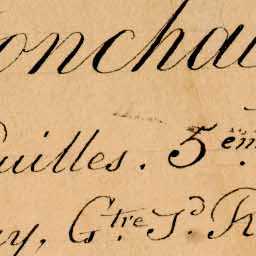 onchai
uilles. 5.ém
ay, G.tre J.d R